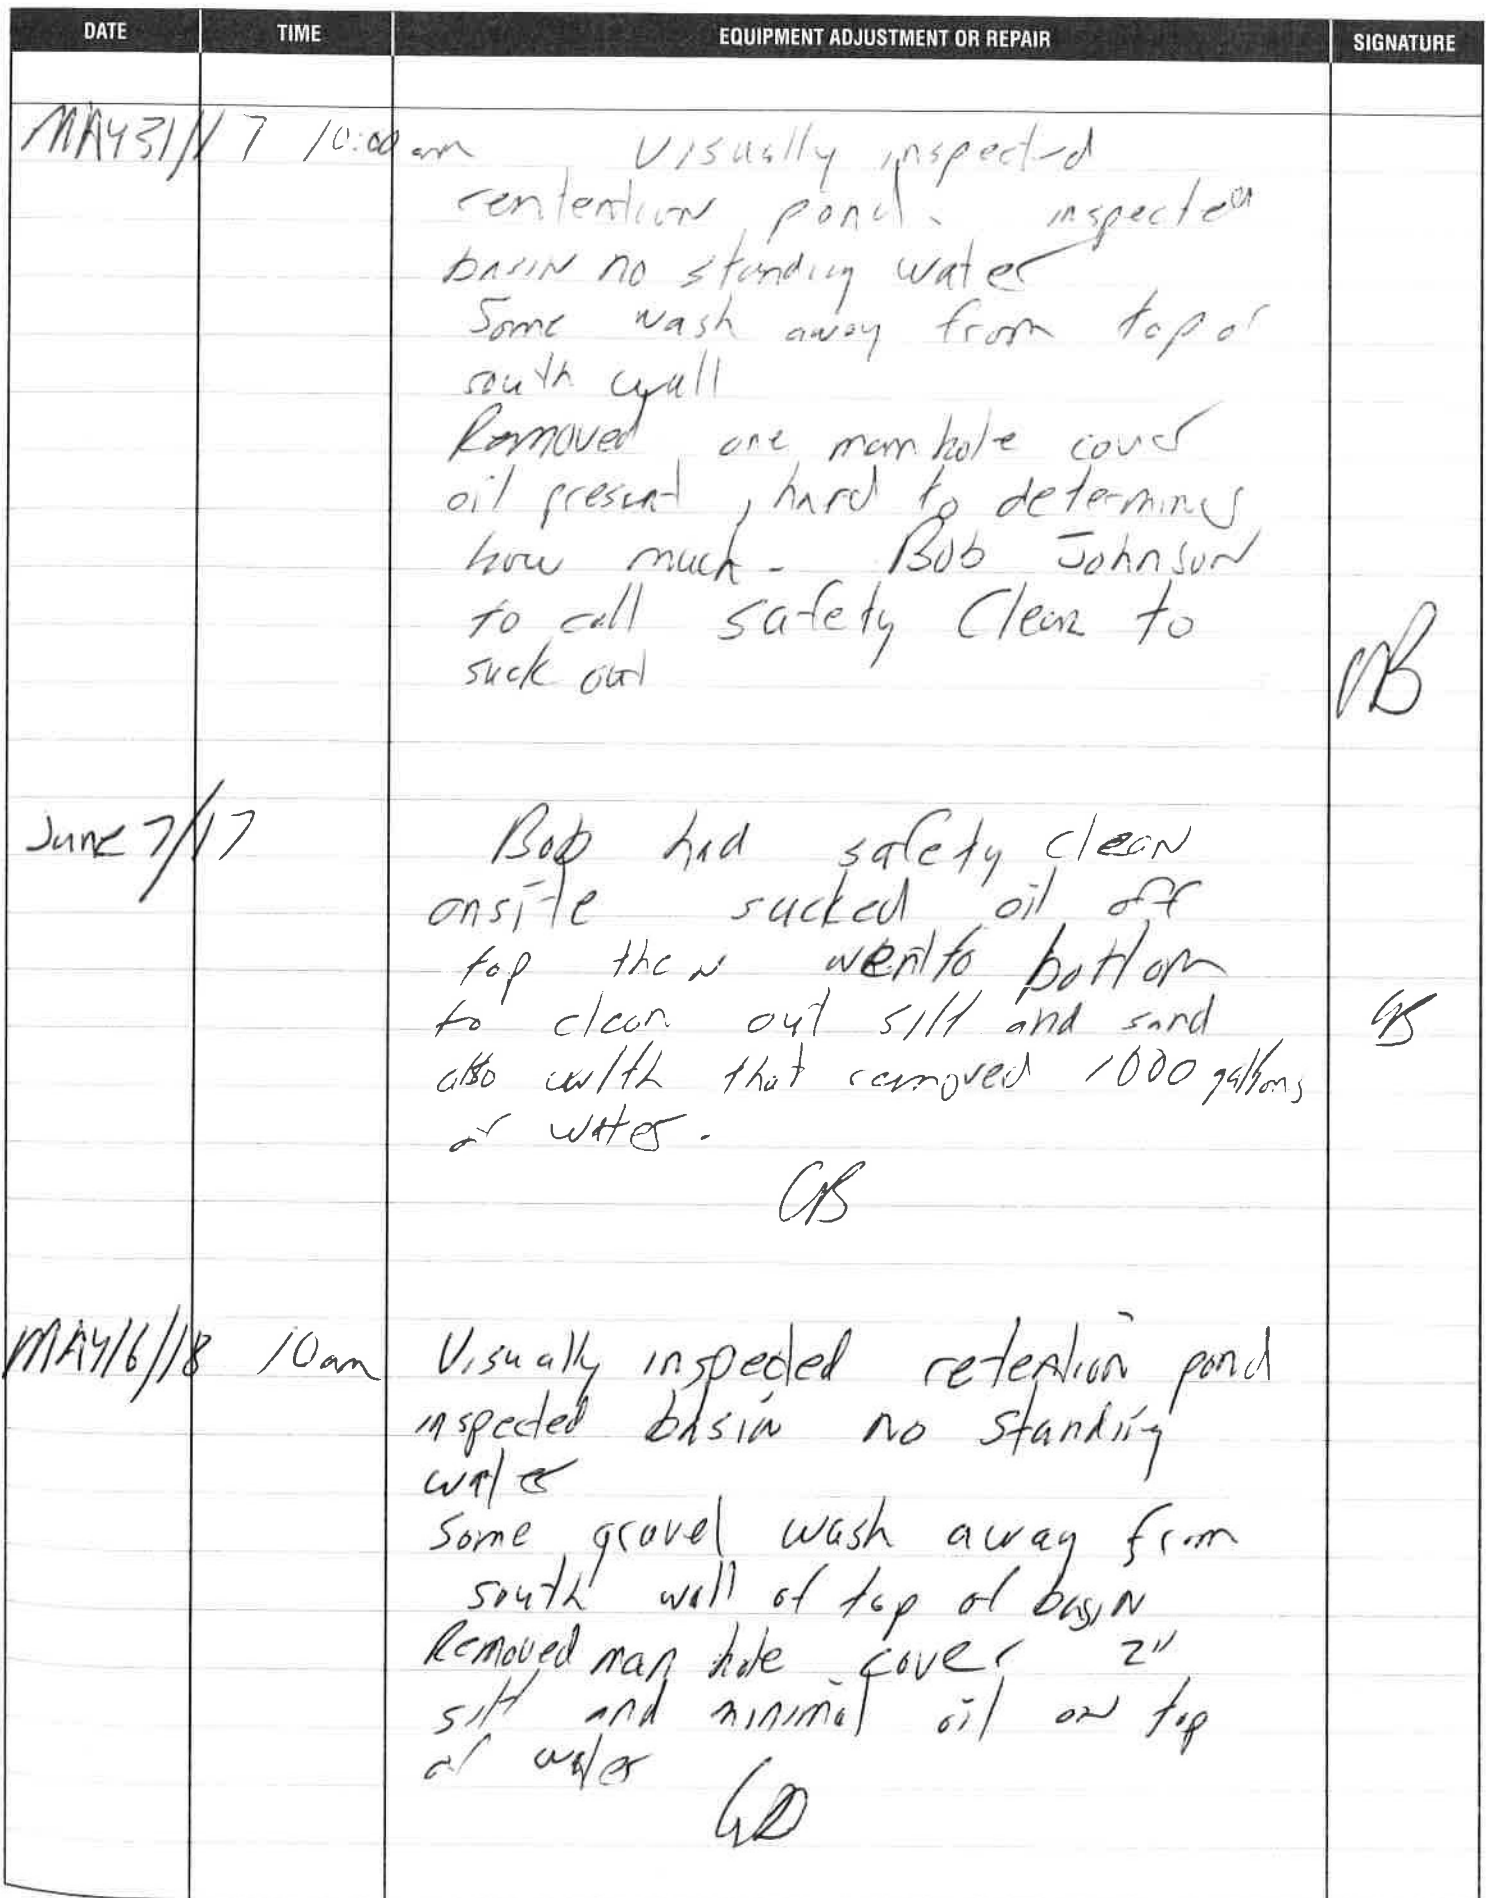 DATE TIME EQUIPMENT ADJUSTMENT OR REPAIR SIGNATURE
MAY 31/17 10:00 am Visually inspected
rentention pond. inspected
basin no standing water
Some wash away from top of
south wall
Removed one man hole cover
oil present, hard to determine
how much - Bob Johnson
to call Safety Clean to
suck out
June 7/17 Bob had safety clean
onsite sucked oil off
top then went to bottom
to clean out silt and sand
also with that removed 1000 gallons
of water.
MAY 16/18 10 am Visually inspected retention pond
inspected basin no standing
water
Some gravel wash away from
south wall of top of basin
Removed man hole cover 2"
silt and minimal oil on top
of water